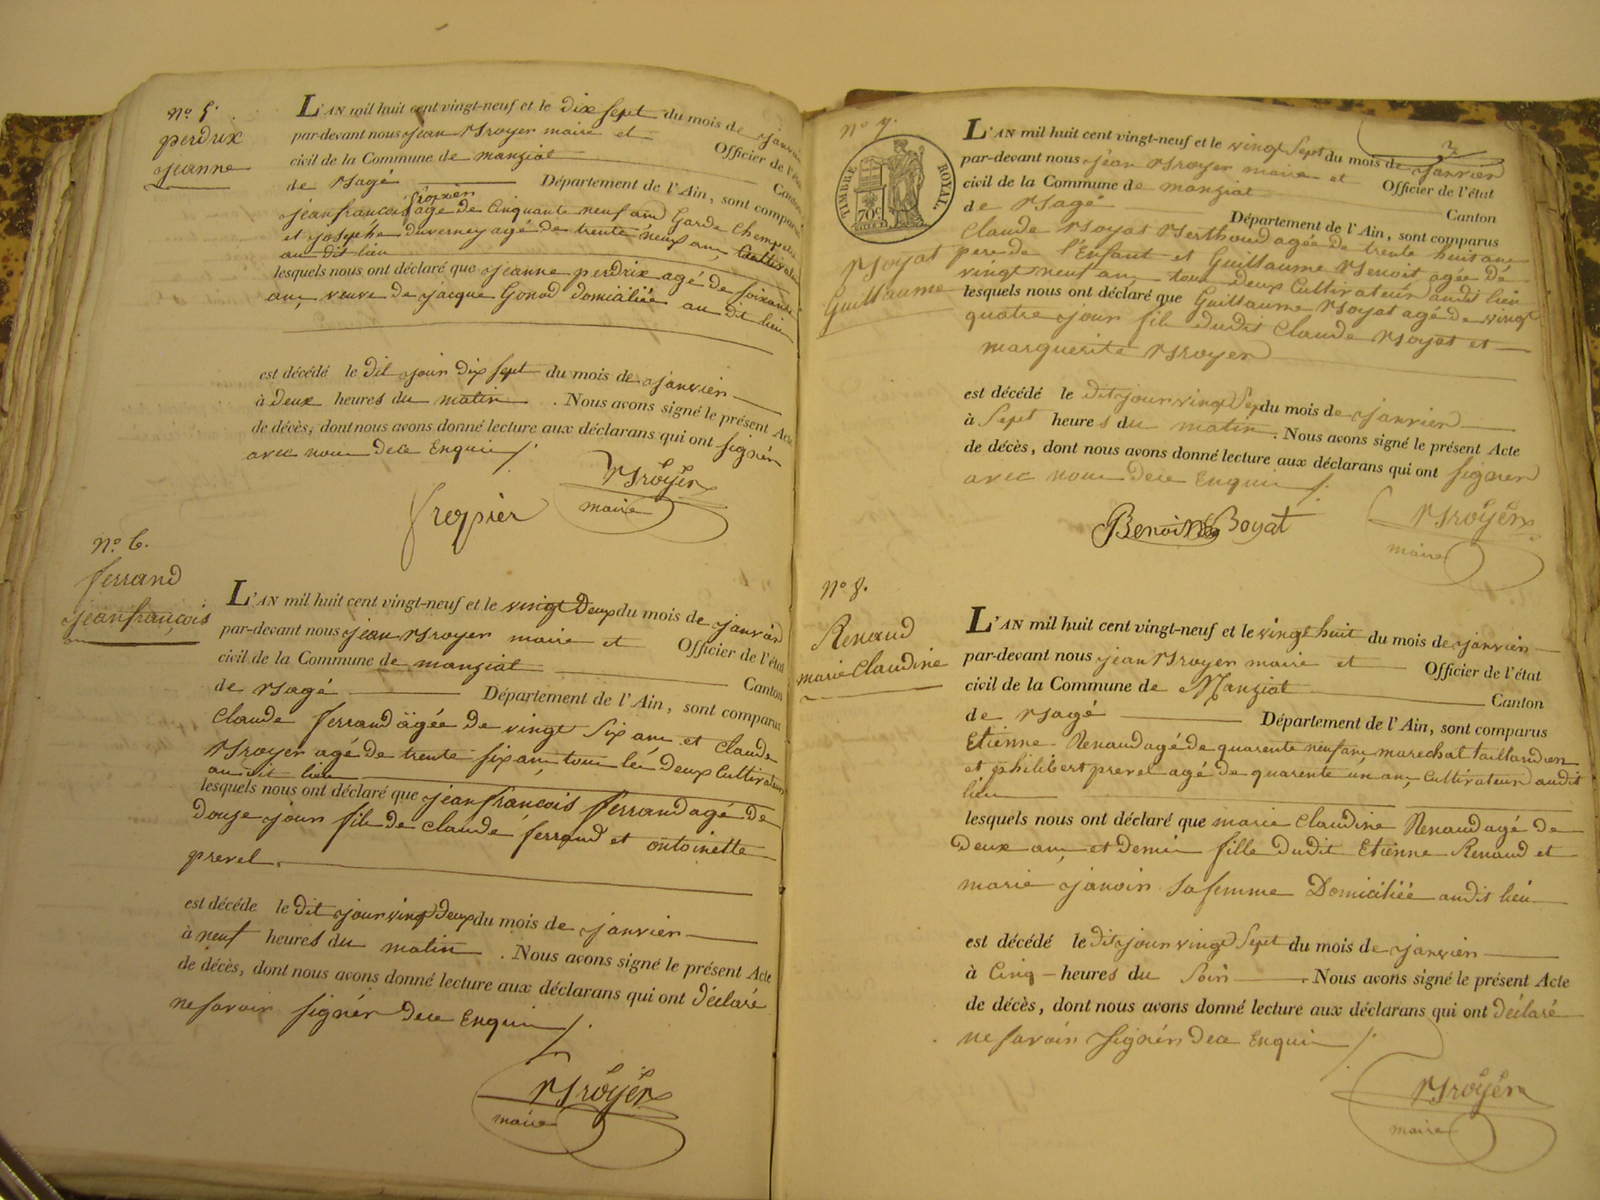 N.o 5.
perdrix
jeanne
L'AN mil huit cent vingt-neuf et le dix sept du mois de janvier
par-devant nous jean Broyer maire et Officier de l'état
civil de la Commune de manziat Canton
de Bagé Département de l'Ain, sont comparus
jean françois fropier agé de Cinquante neuf ans Garde Champetre
et josephe duverney agé de trente neuf ans Cultivateur
au dit lieu
lesquels nous ont déclaré que jeanne perdrix agé de soixante
ans, veuve de jacque Gonod domiciliée au dit lieu
est décédé le dit jour dix sept du mois de janvier
à deux heures du matin. Nous avons signé le présent Acte
de décès, dont nous avons donné lecture aux déclarans qui ont signér
avec nous dece Enquis /.
fropier
Broyer
maire
N.o 6.
ferrand
jean françois
L'AN mil huit cent vingt-neuf et le vingt Deux du mois de janvier
par-devant nous jean Broyer maire et Officier de l'état
civil de la Commune de manziat Canton
de Bagé Département de l'Ain, sont comparus
Claude ferrand âgée de vingt Six ans et Claude
Broyer agé de trente six ans tous lés Deux Cultivateurs
au dit lieu
lesquels nous ont déclaré que jean françois ferrand agé de
Douze jour fils de Claude ferrand et ontoinette
prevel.
est décédé le Dit jour vingt Deux du mois de janvier
à neuf heures du matin. Nous avons signé le présent Acte
de décès, dont nous avons donné lecture aux déclarans qui ont déclaré
ne savoir signér dece Enquis /.
Broyer
maire
3
N.o 7.
TIMBRE ROYAL.
70c
Boyat
Guillaume
L'AN mil huit cent vingt-neuf et le vingt Sept du mois de janvier
par-devant nous jean Broyer maire et Officier de l'état
civil de la Commune de manziat Canton
de Bagé Département de l'Ain, sont comparus
Claude Boyat Berthoud agée de trente huit ans
pere de l'Enfant et Guillaume Benoit agée de
vingt neuf ans, tous deux Cultivateur audit lieu
lesquels nous ont déclaré que Guillaume Boyat agé de vingt
quatre jour fils dudit Claude Boyat et
marguerite Broyer
est décédé le dit jour vingt Sept du mois de janvier
à Sept heures du matin. Nous avons signé le présent Acte
de décès, dont nous avons donné lecture aux déclarans qui ont signér
avec nous dece Enquis /.
Benoit Boyat
Broyer
maire
N.o 8.
Renaud
marie Claudine
L'AN mil huit cent vingt-neuf et le vingt huit du mois de janvier
par-devant nous jean Broyer maire et Officier de l'état
civil de la Commune de Manziat Canton
de Bagé Département de l'Ain, sont comparus
Etienne Renaud agé de quarente neuf ans, marechal taillandier
et philibert prevel agé de quarente un ans, Cultivateur audit
lieu
lesquels nous ont déclaré que marie Claudine Renaud agé de
Deux ans et Demi fille dudit Etienne Renaud et
marie janoir sa femme Domiciliée audit lieu
est décédé le dit jour vingt Sept du mois de janvier
à Cinq heures du Soir. Nous avons signé le présent Acte
de décès, dont nous avons donné lecture aux déclarans qui ont déclaré
ne savoir signér dece Enquis /.
Broyer
maire